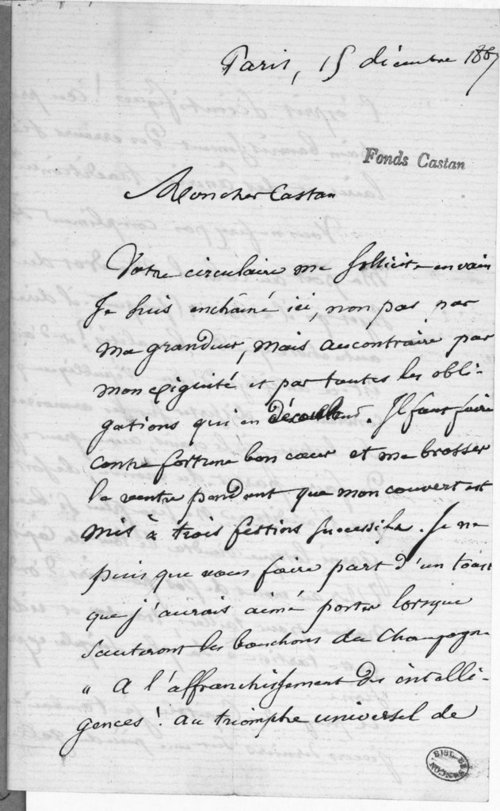 Paris, 15 décembre 186
Fonds Castan
Mon cher Castan
Votre circulaire me sollicite en vain
Je suis enchaîné ici, non pas par
ma grandeur, mais au contraire par
mon exiguité et par toutes les obli-
gations qui en découlent. Il faut faire
contre fortune bon cœur et me brosser
le ventre pendant que mon couvert est
mis à trois festins successifs. Je ne
puis que vous faire part d'un toast
que j'aurais aimé porter lorsque
sauteront les bouchons du Champagne
" A l'affranchissement des intelli-
gences! Au triomphe universel de